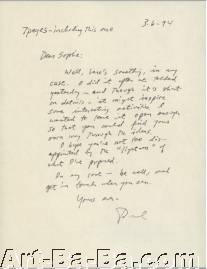 7 pages - including this one
3.6.94
Dear Sophie:
Well, here's something, in any
case. I did it after we talked
yesterday - and though it's short
on details - it might inspire
some interesting activities. I
wanted to leave it open enough
so that you could find your
own way through the ideas.
I hope you're not too dis-
appointed by the "lightness" of
what I've proposed.
In any event - be well, and
get in touch when you can.
Yours ever,
Paul
Art-Ba-Ba.com